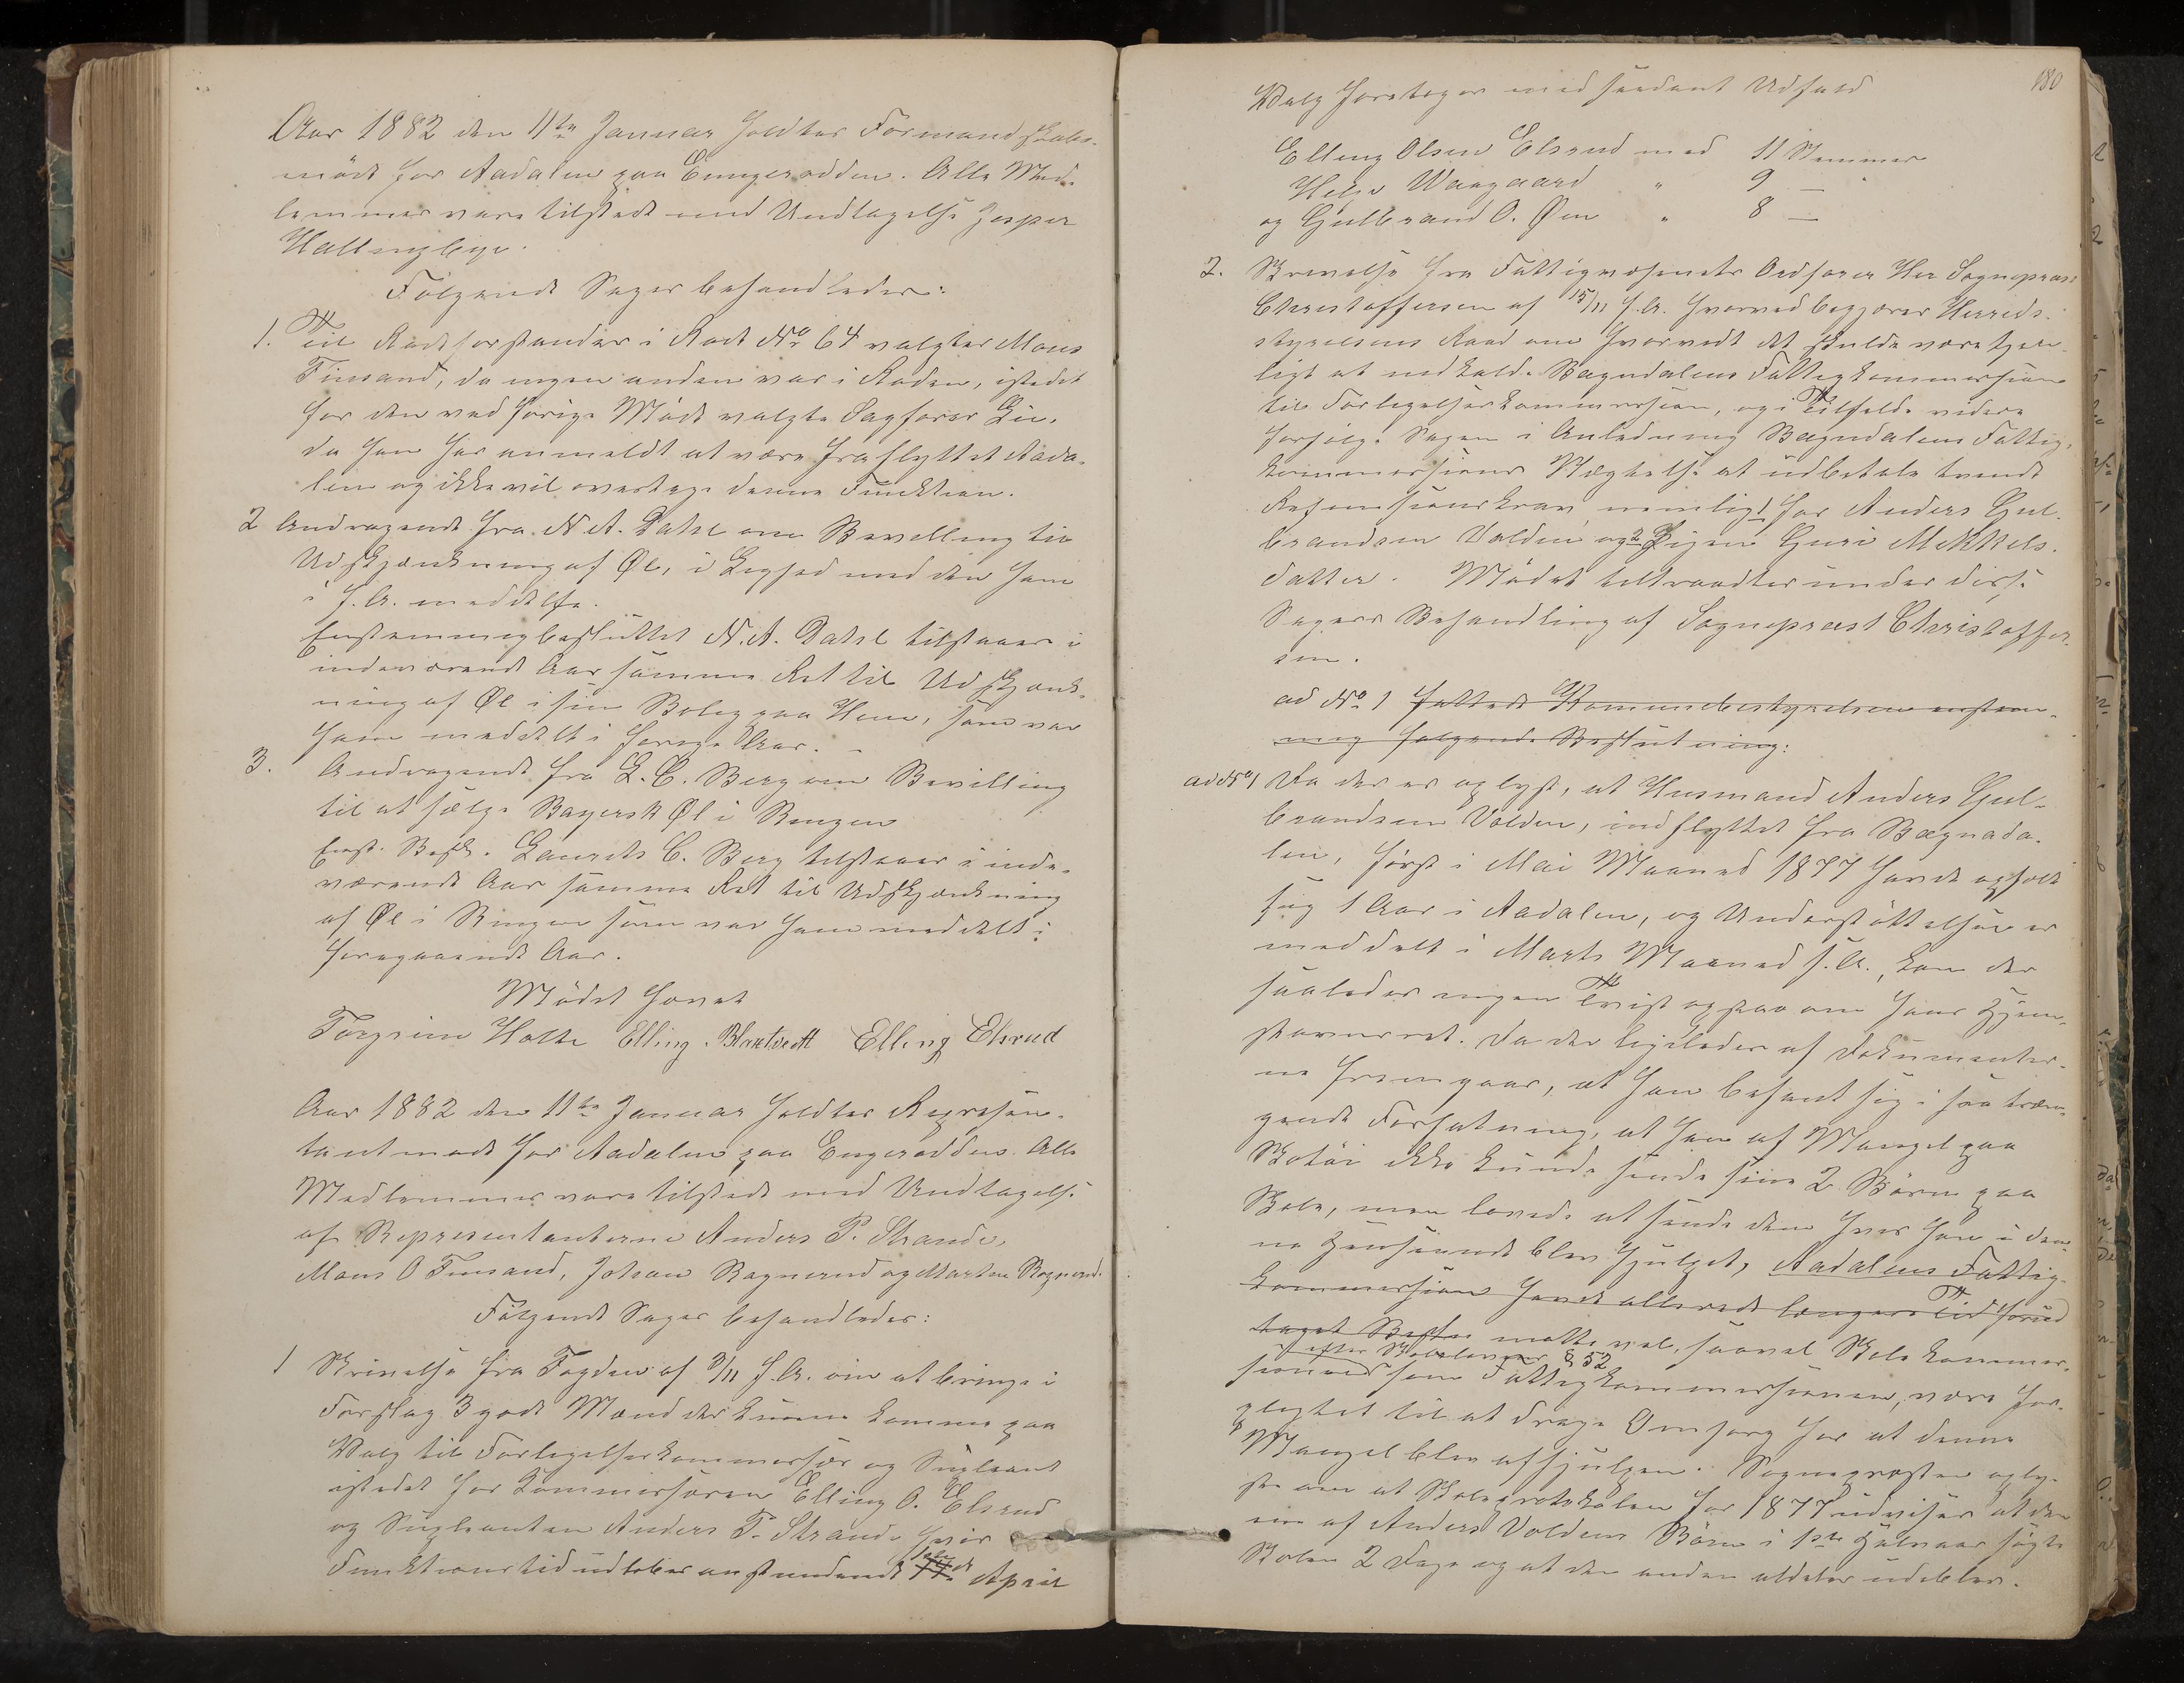 Aar 1882 den 11te Januar holdtes Formandskabs-
møde for Aadalen paa Engerodden. Alle Med-
lemmer vare tilstede med Undtagelse Jesper
Hallingbye.
Følgende Sager behandledes:
1. Til Rodeforstander i Rode No 64 valgtes Mons
Finsand, da ingen anden var i Roden, istedet
for den ved forrige Møde valgte Sagfører Lie,
da han har anmeldt at være fraflyttet Aada-
len og ikke vil overtage denne Funktion.
2 Andragende fra N. A. Dahl om Bevilling til
Udskjænkning af Øl, i Lighed med den ham
i f. A. meddelte.
Enstemmig besluttet N. A. Dahl tilstaaes i
indeværende Aar samme Ret til Udskjænk-
ning af Øl i sin Bolig paa Hem, som var
ham meddelt i forrige Aar. -
3. Andragende fra L. C. Berg om Bevilling
til at sælge Bayersk Øl i Ringen
Enst. Besl. Laurits C. Berg tilstaaes i inde-
værende Aar samme Ret til Udskjænkning
af Øl i Ringen som var ham meddelt i
foregaaende Aar.
Mødet hævet
Torgrim Holte Elling Bloxtvedt Elling Elsrud
Aar 1882 den 11te Januar holdtes Repræsen-
tantmøde for Aadalen paa Engerodden. Alle
Medlemmer vare tilstede med Undtagelse
af Representanterne Anders P. Strande,
Mons O Finsand, Johan Ragnerud og Marten Rognerud.
Følgende Sager behandledes:
1 Skrivelse fra Fogden af 3/11 f. A. om at bringe i
Forslag 3 gode Mænd der kunne komme paa
Valg til Forligelseskommissær og Supleant
istedet for Kommisæren Elling O. Elsrud
og Supleanten Anders P. Strande hvis
Funktionstid udløber anstundende April
180
Valg foretoges med saadant Udfald
Elling Olsen Elsrud med 11 Stemmer
Helge Waagaard " 9 —
og Gulbrand O. Øen " 8 —
2. Skrivelse fra Fattigvæsenets Ordfører Her Sognepræst
Christoffersen af 15/11 f. A. hvorved begjæres Herreds-
styrelsens Raad om hvorvidt det skulde være tjen-
ligt at indkalde Bægndalens Fattigkommission
til Forligelseskommission, og i Tilfælde videre
forfølge Sagen i Anledning Bægndalens Fattig-
kommissions Vægtelse at udbetale tvende
Refusionskrav nemlig 1 for Anders Gul-
brandsen Volden og 2 Pigen Guri Mikkels-
datter. Mødet tiltraadtes under disse
Sagers Behandling af Sognepræst Christoffer-
sen.
ad No 1 fattede Komunebestyrelsen enstem-
mig følgende Beslutning:
ad No 1 Da der er oplyst, at Husmand Anders Gul-
brandsen Volden, indflyttet fra Bægnada-
len, først i Mai Maaned 1877 havde opholdt
sig 1 Aar i Aadalen, og Understøttelsen er
meddelt i Marts Maaned s. A., kan der
saaledes ingen Tvist opstaa om hans Hjem-
stavnsret. Da der ligeledes af Dokumenter-
ne fremgaar, at han befandt sig i saa træn-
gende Forfatning, at han af Mangel paa
Skotøi ikke kunde sende sine 2 Børn paa
Skole, men lovede at sende dem hvis han i den-
ne Henseende blev hjulpet, Aadalens Fattig-
kommission havde allerede længere Tid forud
taget maatte vel, saavel Skolekommis-
efter Skoleloven § 52
sionen som Fattigkommissionen, være for-
pligtet til at drage Omsorg for at denne
Mangel blev afhjulpen. Sognepræsten oply-
ste om at Skoleprotokolen for 1877 udviser at den
ene af Anders Voldens Børn i 1ste Halvaar søgte
Skolen 2 Dage og at den anden aldeles udeblev.